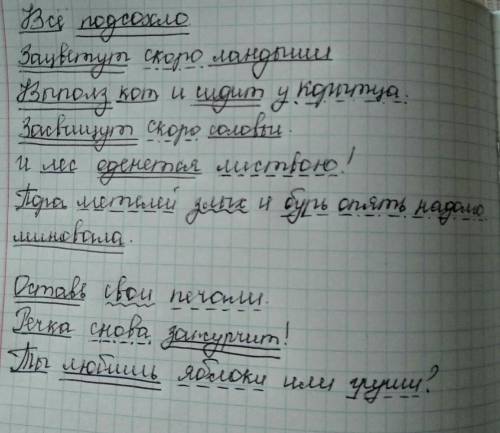 Всё подсохло
Зацветут скоро ландыши
Выполз кот и сидит у корытца.
Засвищут скоро соловьи.
И лес оденется листвою!
Пора метелей злых и бурь опять надолго
миновала.
Оставь свои печали.
Речка снова зажурчит!
Ты любишь яблоки или груши?